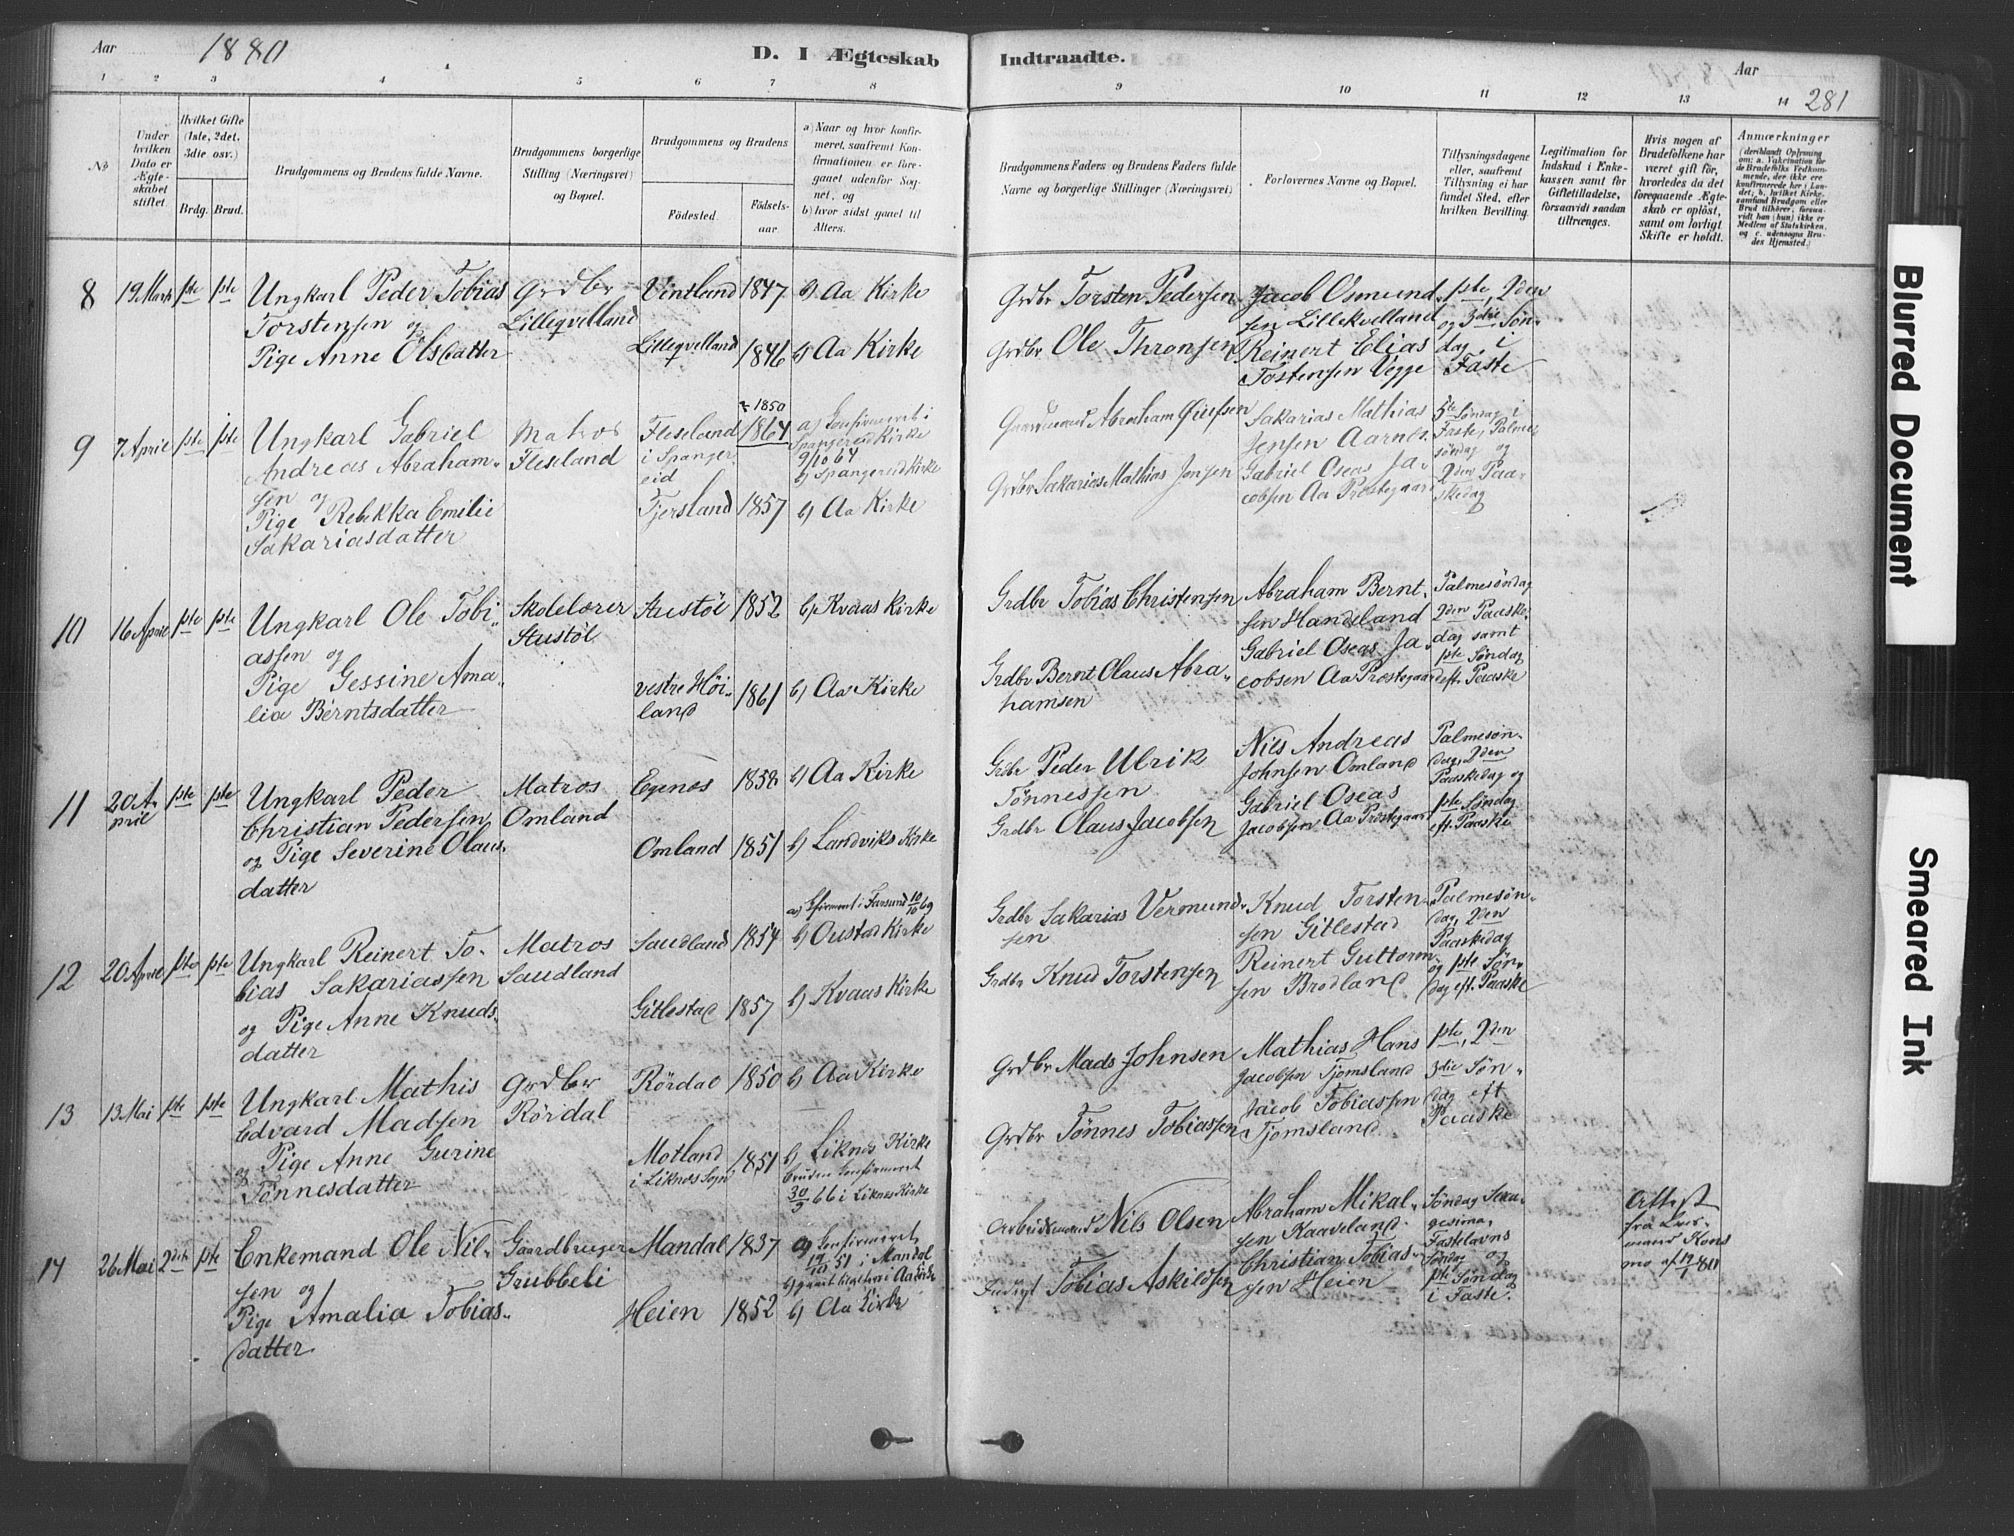 Aar 1880 D. I Ægteskab Indtraadte. Aar 281
1 2 3 4 5 6 7 8 9 10 11 12 13 14
No
Under hvilken Dato er Ægteskabet stiftet.
Hvilket Gifte (1ste, 2det, 3die osv.)
Brdg. Brud.
Brudgommens og Brudens fulde Navne.
Brudgommens borgerlige Stilling (Næringsvei) og Bopæl.
Brudgommens og Brudens
Fødested. Fødselsaar.
a) Naar og hvor konfirmeret, saafremt Konfirmationen er foregaaet udenfor Sognet, og
b) hvor sidst gaaet til Alters.
Brudgommens Faders og Brudens Faders fulde Navne og borgerlige Stillinger (Næringsvei)
Forlovernes Navne og Bopæl.
Tillysningsdagene eller, saafremt Tillysning ei har fundet Sted, efter hvilken Bevilling.
Legitimation for Indskud i Enkekassen samt for Giftetilladelse, forsaavidt saadan tiltrænges.
Hvis nogen af Brudefolkene har været gift før, hvorledes da det foregaaende Ægteskab er opløst, samt om lovligt Skifte er holdt.
Anmærkninger (deriblandt Oplysning om: a. Vakcination for de Brudefolks Vedkommende, der ikke ere konfirmerede her i Landet; b. hvilket Kirkesamfund Brudgom eller Brud tilhører, forsaavidt han (hun) ikke er Medlem af Statskirken, og c. udensogns Brudes Hjemsted.)
8 19 Marts 1ste 1ste
Ungkarl Peder Tobias
Torstensen og
Pige Anne Olsdatter
Grdbr
Lilleqvelland
Vintland 1847 b) Aa Kirke
Lilleqvelland 1846 b) Aa Kirke
Grdbr Torsten Pedersen
Grdbr Ole Thronsen
Jacob Osmund
sen Lillekvelland
Reinert Elias
Tostensen Vegge
1ste, 2den
og 3die Søn-
dag i
Faste
9 7 April 1ste 1ste
Ungkarl Gabriel
Andreas Abraham-
sen og
Pige Rebekka Emilie
Sakariasdatter
Matros
Fleseland
Fleseland
i Spanger
eid
1850
1864
a) Konfirmeret i
Spangereid Kirke
9/10 64
b) Spangereid Kirke
Tjersland 1857 b) Aa Kirke
Gaardmand Abraham
Grdbr Sakarias Mathias Jensen
Sakarias Mathias
Jensen Aarnes
Gabriel Oseas Ja-
cobsen Aa Prestegaard
5te Søndag i
Faste, Palme
søndag og
2den Paa-
skedag
10 16 April 1ste 1ste
Ungkarl Ole Tobi-
assen og
Pige Gessine Ama-
lia Berntsdatter
Skolelærer
Stustøl
Stustøl 1852 b) Kvaas Kirke
vestre Høi-
land 1861 b) Aa Kirke
Grdbr Tobias Christensen
Grdbr Bernt Olaus Abra-
hamsen
Abraham Bernt-
sen Handeland
Gabriel Oseas Ja-
cobsen Aa Prestegaard
Palmesøndag
2den Paaske-
dag samt
1ste Søndag
eft. Paaske
11 20 A-
pril 1ste 1ste
Ungkarl Peder
Christian Pedersen
og Pige Severine Olaus-
datter
Matros
Omland
Egenes 1858 b) Aa Kirke
Omland 1851 b) Landviks Kirke
Grdbr Peder Ulrik
Tønnessen
Grdbr Olaus Jacobsen
Nils Andreas
Johnsen Omland
Gabriel Oseas
Jacobsen Aa Prestegaard
Palmesøn-
dag, 2den
Paaskedag og
1ste Søndag
eft. Paaske
12 20 April 1ste 1ste
Ungkarl Reinert To-
bias Sakariassen
og Pige Anne Knuds-
datter
Matros
Saudland
Saudland 1854
a) Konfirmeret i Farsund 10/10 69
b) Oustad Kirke
Gitlestad 1857 b) Kvaas Kirke
Grdbr Sakarias Vermund-
sen
Grdbr Knud Torstensen
Knud Torsten-
sen Gitlestad
Reinert Guttorm-
sen Brodland
Palmesøn-
dag, 2den
Paaskedag
og 1ste Søn-
dag eft. Paaske
13 13 Mai 1ste 1ste
Ungkarl Mathis
Edvard Madsen
og Pige Anne Gurine
Tønnesdatter
Grdbr
Rørdal
Rørdal 1850 b) Aa Kirke
Motland
i Liknes Sogn 1851
b) Liknes Kirke
Bruden konfirmeret
30/9 66 i Liknes Kirke
Grdbr Mads Johnsen
Grdbr Tønnes Tobiassen
Mathias Hans
Jacobsen Tjomsland
Jacob Tobiassen
Tjomsland
1ste, 2den
3die Søn-
dag eft
Paaske
14 26 Mai 2det 1ste
Enkemand Ole Nil-
sen og
Pige Amalia Tobias-
datter
Gaardbruger
Grubbeli
Mandal 1837
a) Konfirmeret
19/10 51 i Mandal
b) Aa Kirke
Heien 1852 b) Aa Kirke
Arbeidsmand Nils Olsen
Tobias Askildsen
Abraham Mikal-
sen Kaaveland
Christian Tobias-
sen Heien
Søndag Sexa-
gesima,
Fastelavns
Søndag og
1ste Søndag
i Faste.
Attest
fra Lens-
mand Kons
mo af
Blurred Document
Smeared Ink